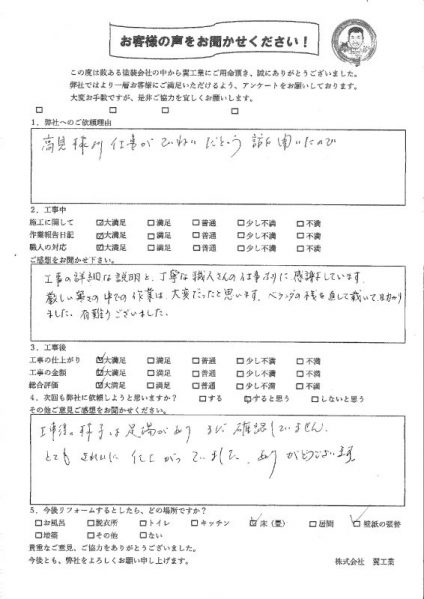 お客様の声をお聞かせください！
この度は数ある塗装会社の中から翼工業にご用命頂き、誠にありがとうございました。
弊社ではより一層お客様にご満足いただけるよう、アンケートをお願いしております。
大変お手数ですが、是非ご協力を宜しくお願いします。
□ □ □ □
1．弊社へのご依頼理由
高見様が仕事がていねいだという話を聞いたので
2．工事中
施工に関して ☑大満足 □満足 □普通 □少し不満 □不満
作業報告日記 ☑大満足 □満足 □普通 □少し不満 □不満
職人の対応 ☑大満足 □満足 □普通 □少し不満 □不満
ご感想をお聞かせ下さい。
工事の詳細な説明と、丁寧な職人さんの仕事ぶりに感謝しています。
厳しい寒さの中での作業は、大変だったと思います。ベランダの桟を直して戴いて助かり
ました。有難うございました。
3．工事後
工事の仕上がり ☑大満足 □満足 □普通 □少し不満 □不満
工事の金額 ☑大満足 □満足 □普通 □少し不満 □不満
総合評価 ☑大満足 □満足 □普通 □少し不満 □不満
4．次回も弊社に依頼しようと思いますか？ □する ☑すると思う □しないと思う
その他ご意見ご感想をお聞かせください。
工事後の様子は足場があり まだ確認していません。
とてもきれいに仕上がっていました。ありがとうございます
5．今後リフォームするとしたら、どの場所ですか？
□お風呂 □脱衣所 □トイレ □キッチン ☑床（畳） □居間 ☑壁紙の張替
□増築 □その他 □ない
貴重なご意見、ご協力をありがとうございました。
今後とも、弊社をよろしくお願い申し上げます。 株式会社 翼工業